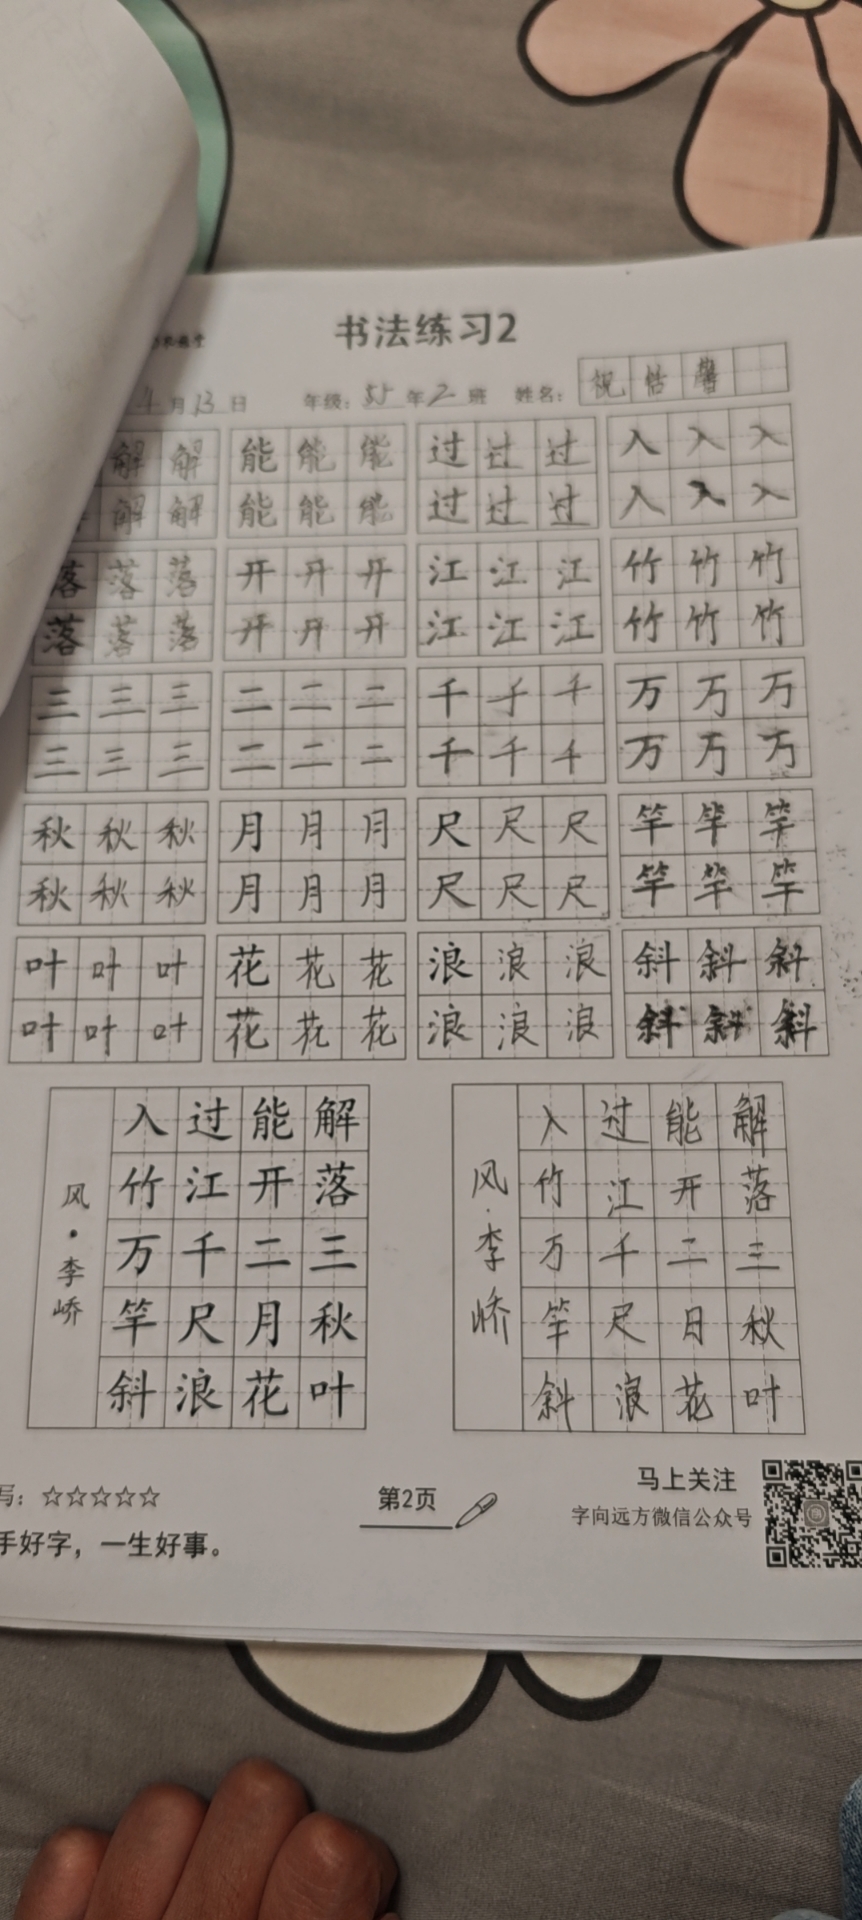 书法练习2
4月13日 年级：55年2班 姓名：祝恬馨
解 解 能 能 能 过 过 过 入 入 入
解 解 能 能 能 过 过 过 入 入 入
落 落 落 开 开 开 江 江 江 竹 竹 竹
落 落 落 开 开 开 江 江 江 竹 竹 竹
三 三 三 二 二 二 千 千 千 万 万 万
三 三 三 二 二 二 千 千 千 万 万 万
秋 秋 秋 月 月 月 尺 尺 尺 竿 竿 竿
秋 秋 秋 月 月 月 尺 尺 尺 竿 竿 竿
叶 叶 叶 花 花 花 浪 浪 浪 斜 斜 斜
叶 叶 叶 花 花 花 浪 浪 浪 斜 斜 斜
风·李峤
解落三秋叶
能开二月花
过江千尺浪
入竹万竿斜
风·李峤
解落三秋叶
能开二日花
过江千尺浪
入竹万竿斜
写：☆☆☆☆☆
手好字，一生好事。
第2页
马上关注
字向远方微信公众号